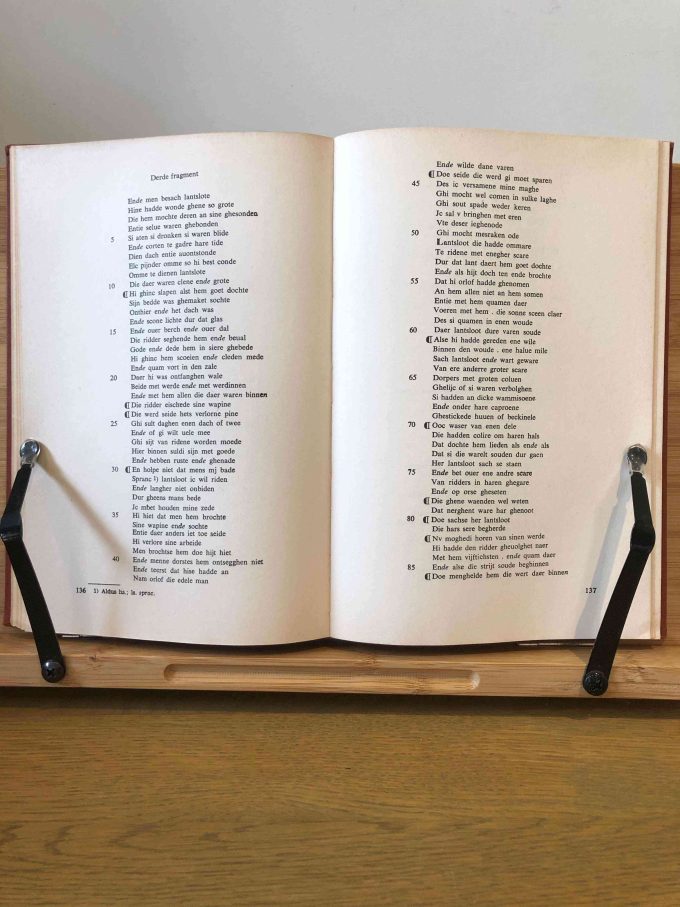 Derde fragment
Ende men besach lantslote
Hine hadde wonde ghene so grote
Die hem mochte deren an sine ghesonden
Entie selue waren ghebonden
5 Si aten si dronken si waren blide
Ende corten te gadre hare tide
Dien dach entie auontstonde
Elc pijnder omme so hi best conde
Omme te dienen lantslote
10 Die daer waren clene ende grote
¶ Hi ghinc slapen alst hem goet dochte
Sijn bedde was ghemaket sochte
Onthier ende het dach was
Ende scone lichte dur dat glas
15 Ende ouer berch ende ouer dal
Die ridder seghende hem ende beual
Gode ende dede hem in siere ghebede
Hi ghinc hem scoeien ende cleden mede
Ende quam vort in den zale
20 Daer hi was ontfanghen wale
Beide met werde ende met werdinnen
Ende met hem allen die daer waren binnen
¶ Die ridder eischede sine wapine
¶ Die werd seide hets verlorne pine
25 Ghi sult daghen enen dach of twee
Ende of gi wilt uele mee
Ghi sijt van ridene worden moede
Hier binnen suldi sijn met goede
Ende hebben ruste ende ghenade
30 ¶ En holpe niet dat mens mj bade
Spranc 1) lantsloot ic wil riden
Ende langher niet onbiden
Dur gheens mans bede
Jc mbet houden mine zede
35 Hi hiet dat men hem brochte
Sine wapine ende sochte
Entie daer anders iet toe seide
Hi verlore sine arbeide
Men brochtse hem doe hijt hiet
40 Ende menne dorstes hem ontsegghen niet
Ende teerst dat hise hadde an
Nam orlof die edele man
136 1) Aldus hs.; ls. sprac.
Ende wilde dane varen
¶ Doe seide die werd gi moet sparen
45 Des ic versamene mine maghe
Ghi mocht wel comen in sulke laghe
Ghi sout spade weder keren
Jc sal v bringhen met eren
Vte deser ieghenode
50 Ghi mocht mesraken ode
Lantsloot die hadde ommare
Te ridene met enegher scare
Dur dat lant daert hem goet dochte
Ende als hijt doch ten ende brochte
55 Dat hi orlof hadde ghenomen
An hem allen niet an hem somen
Entie met hem quamen daer
Voeren met hem . die sonne sceen claer
Des si quamen in enen woude
60 Daer lantsloot dure varen soude
¶ Alse hi hadde gereden ene wile
Binnen den woude . ene halue mile
Sach lantsloot ende wart geware
Van ere anderre groter scare
65 Dorpers met groten coluen
Ghelijc of si waren verbolghen
Si hadden an dicke wammisoene
Ende onder hare caproene
Ghestickede huuen of beckinele
70 ¶ Ooc waser van enen dele
Die hadden colire om haren hals
Dat dochte hem lieden als ende als
Dat si die warelt souden dur gaen
Her lantsloot sach se staen
75 Ende bet ouer ene andre scare
Van ridders in haren ghegare
Ende op orse gheseten
¶ Die ghene waenden wel weten
Dat nerghent ware har ghenoot
80 ¶ Doe sachse her lantsloot
Die hars sere begherde
¶ Nv moghedi horen van sinen werde
Hi hadde den ridder gheuolghet naer
Met hem vijftichsten . ende quam daer
85 Ende alse die strijt soude beghinnen
¶ Doe menghelde hem die wert daer binnen
137